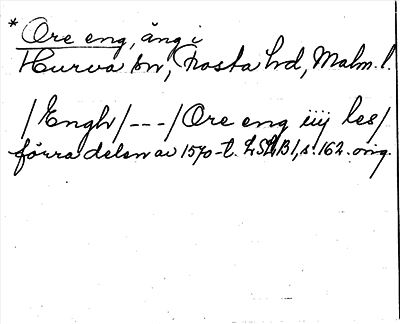 * Ore eng, äng i
Hurva sn, Frosta hd, Malm. l.
/Engh/---/Ore eng iiij les/
förra delen av 1570-t. LSLB1, s. 162. orig.